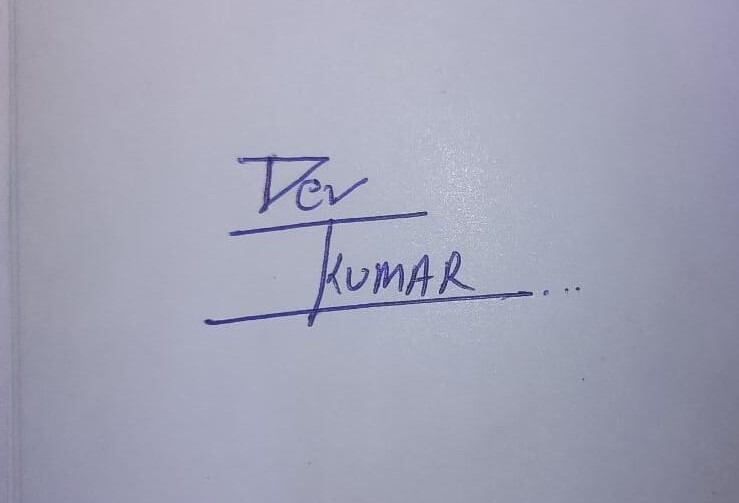 Dev
KUMAR...